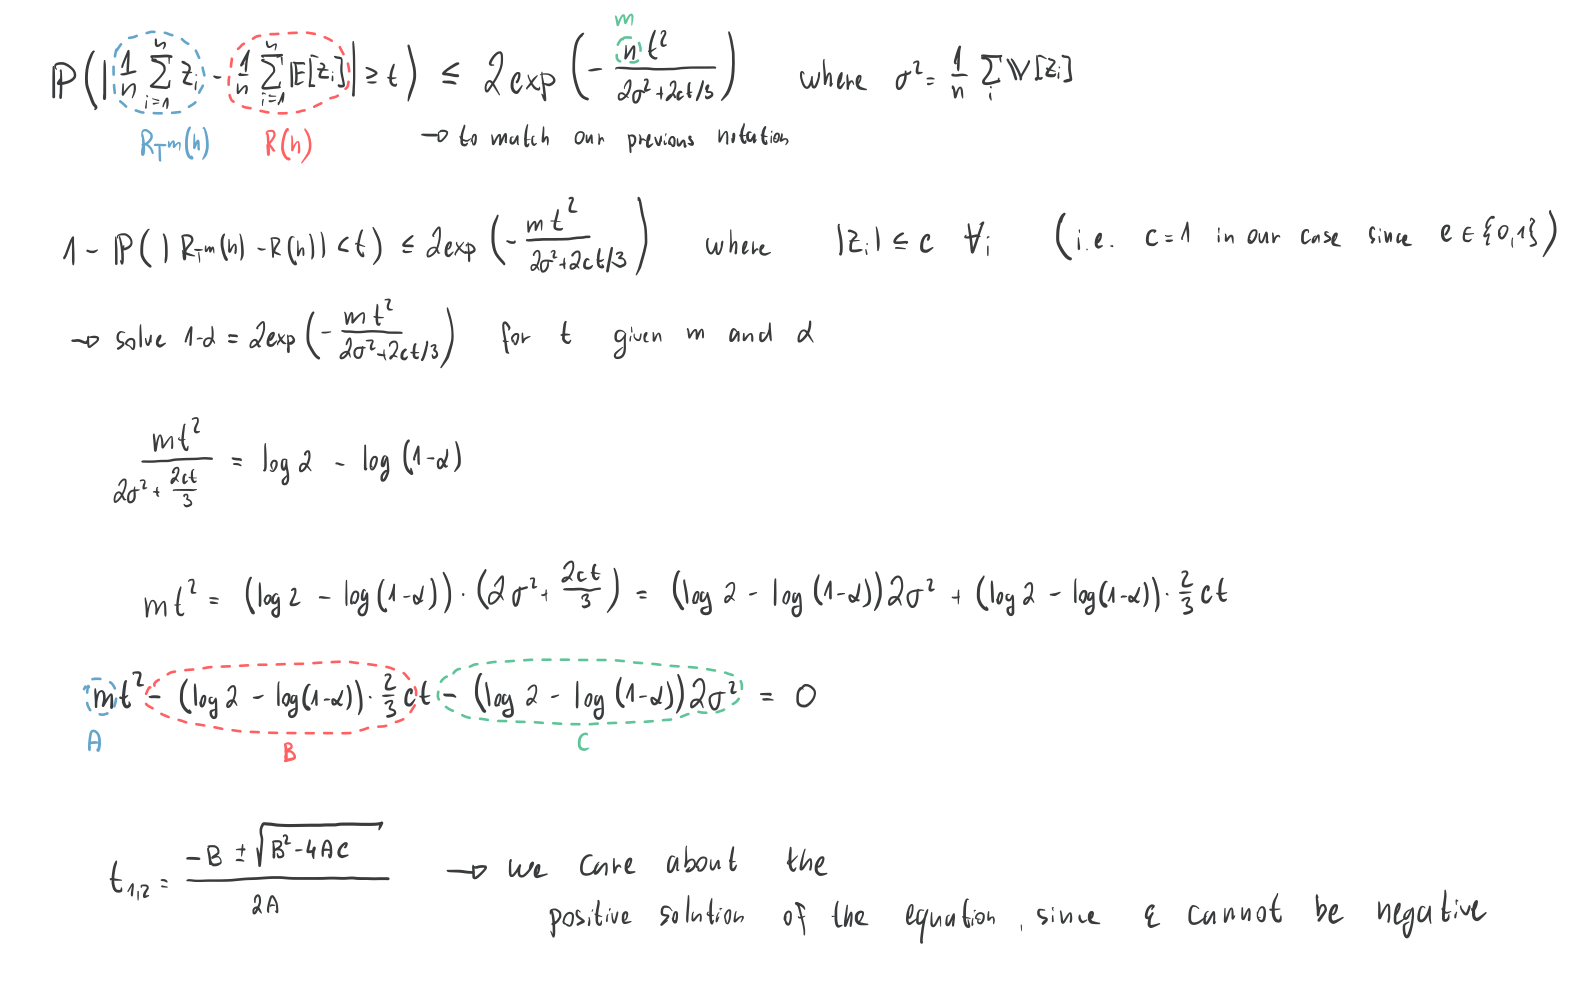 m
ℙ(|1/n Σ_{i=1}^{n} z_i - 1/n Σ_{i=1}^{n} 𝔼[z_i]| ≥ t) ≤ 2exp(- nt²/(2σ²+2ct/3)) where σ² = 1/n Σ_i 𝕍[z_i]
R_{T^m}(h) R(h) → to match our previous notation
1 - ℙ(|R_{T^m}(h) - R(h)| < t) ≤ 2exp(- mt²/(2σ²+2ct/3)) where |z_i| ≤ c ∀i (i.e. c=1 in our case since e ∈ {0,1})
→ solve 1-α = 2exp(- mt²/(2σ²+2ct/3)) for t given m and α
mt²/(2σ² + 2ct/3) = log 2 - log (1-α)
mt² = (log 2 - log(1-α)) · (2σ² + 2ct/3) = (log 2 - log (1-α)) 2σ² + (log 2 - log(1-α)) · 2/3 ct
mt² - (log 2 - log(1-α)) · 2/3 ct - (log 2 - log (1-α)) 2σ² = 0
A B C
t_{1,2} = (-B ± √(B²-4AC))/2A → we care about the
positive solution of the equation, since ε cannot be negative